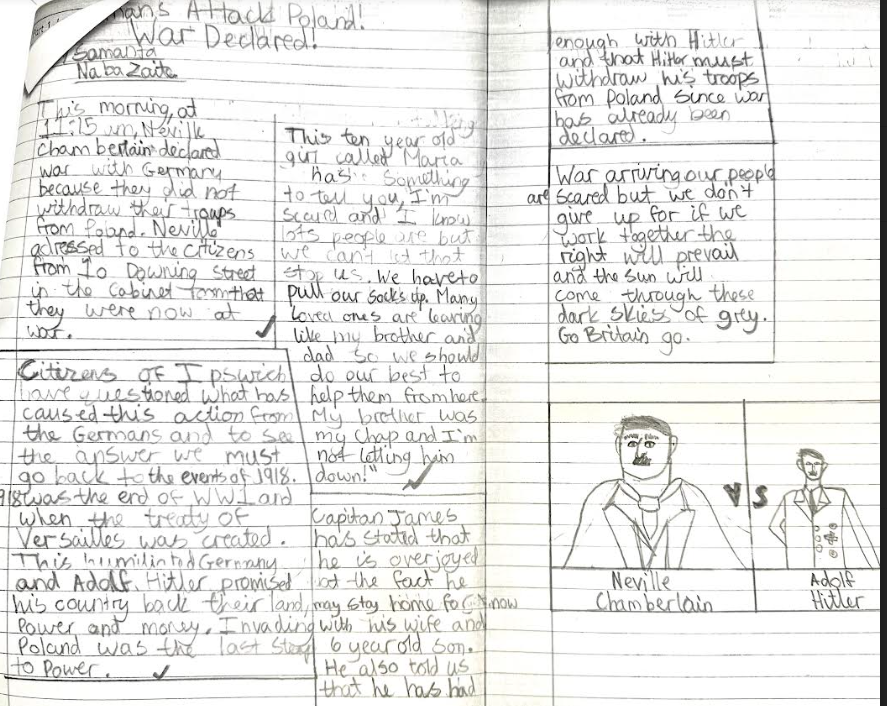 mans Attack Poland!
War Declared!
Samanta
Naba Zaite
This morning, at
11:15 am, Neville
Chamberlain declared
war with Germany
because they did not
withdraw their troups
from Poland. Neville
adressed to the Citizens
from 10 Downing Street
in the Cabinet room that
they were now at
war.
Citizens of Ipswich
have questioned what has
caused this action from
the Germans and to see
the answer we must
go back to the events of 1918.
918 was the end of WW1 and
when the treaty of
Versailles was created.
This humiliated Germany
and Adolf. Hitler promised
his country back their land,
Power and money. Invading
Poland was the last
to Power.
This ten year old
girl called Maria
has Something
to tell you, I'm
scared and I know
lots people are but
we can't let that
stop us. We have to
pull our socks up. Many
Loved ones are leaving
like my brother and
dad So we should
do our best to
help them from here.
My brother was
my Chap and I'm
not letting him
down!"
Capitan James
has stated that
he is overjoyed
at the fact he
may stay home for now
with his wife and
6 year old son.
He also told us
that he has had
enough with Hitler
and that Hitler must
withdraw his troops
from Poland Since war
has already been
declared.
War arriving our people
are scared but we don't
give up for if we
work together the
right will prevail
and the sun will
come through these
dark skies of grey.
Go Britain go.
VS
Neville
Chamberlain
Adolf
Hitler